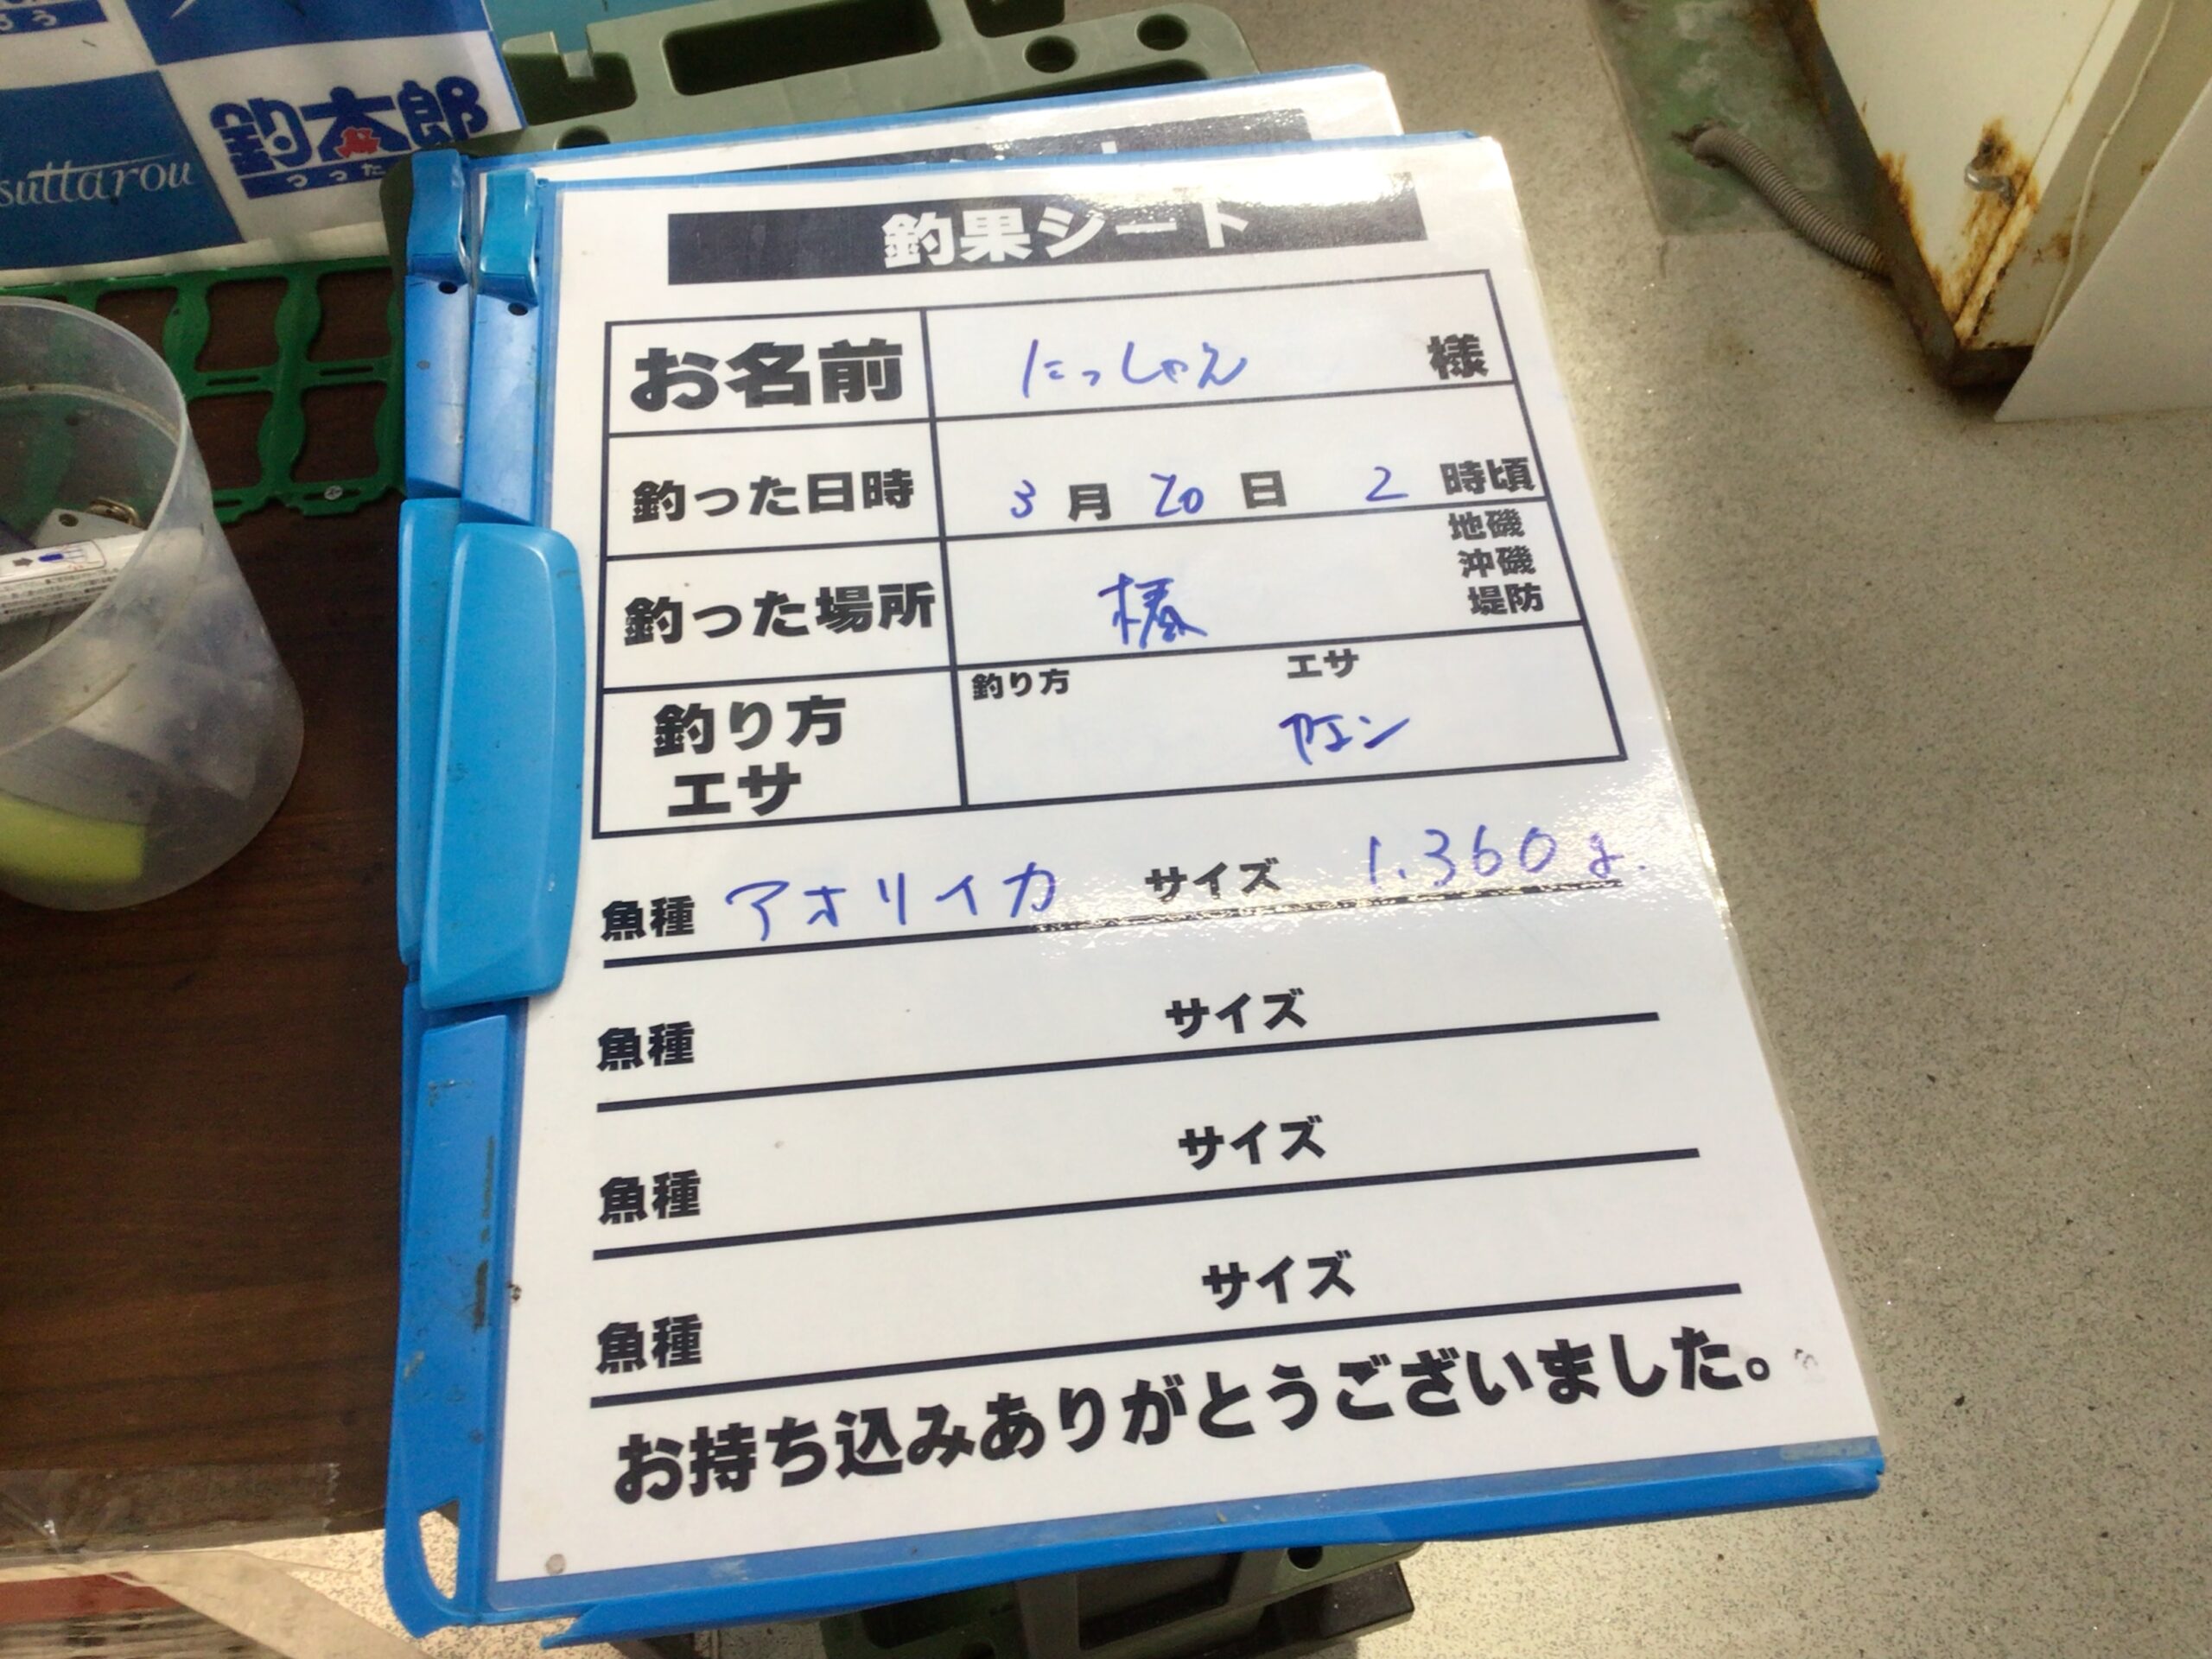 釣太郎
suttarou
釣果シート
お名前 にっしゃん 様
釣った日時 3月20日 2時頃
釣った場所 椿 地磯
沖磯
堤防
釣り方 エサ
釣り方 エサ
ヤエン
魚種 アオリイカ サイズ 1.360g.
魚種 サイズ
魚種 サイズ
魚種 サイズ
お持ち込みありがとうございました。